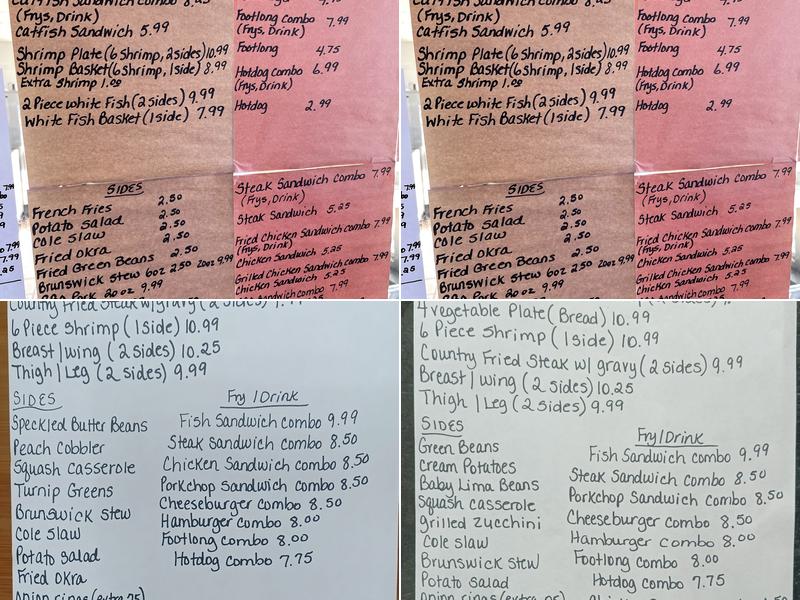 (Frys, Drink)
Catfish Sandwich 5.99
Shrimp Plate (6 Shrimp, 2 sides) 10.99
Shrimp Basket (6 Shrimp, 1 side) 8.99
Extra Shrimp 1.00
2 Piece white Fish (2 sides) 9.99
White Fish Basket (1 side) 7.99
SIDES
French Fries 2.50
Potato Salad 2.50
Cole Slaw 2.50
Fried Okra 2.50
Fried Green Beans 2.50
Brunswick Stew 6oz 2.50 20oz 9.99
BBQ Pork 20 oz 9.99
Footlong Combo 7.99
(Frys, Drink)
Footlong 4.75
Hotdog Combo 6.99
(Frys, Drink)
Hotdog 2.99
Steak Sandwich Combo 7.99
(Frys, Drink)
Steak Sandwich 5.25
Fried Chicken Sandwich Combo 7.99
(Frys, Drink)
Chicken Sandwich 5.25
Grilled Chicken Sandwich Combo 7.99
Chicken Sandwich 5.25
(Frys, Drink)
Catfish Sandwich 5.99
Shrimp Plate (6 Shrimp, 2 sides) 10.99
Shrimp Basket (6 Shrimp, 1 side) 8.99
Extra Shrimp 1.00
2 Piece white Fish (2 sides) 9.99
White Fish Basket (1 side) 7.99
SIDES
French Fries 2.50
Potato Salad 2.50
Cole Slaw 2.50
Fried Okra 2.50
Fried Green Beans 2.50
Brunswick Stew 6oz 2.50 20oz 9.99
BBQ Pork 20 oz 9.99
Footlong Combo 7.99
(Frys, Drink)
Footlong 4.75
Hotdog Combo 6.99
(Frys, Drink)
Hotdog 2.99
Steak Sandwich Combo 7.99
(Frys, Drink)
Steak Sandwich 5.25
Fried Chicken Sandwich Combo 7.99
(Frys, Drink)
Chicken Sandwich 5.25
Grilled Chicken Sandwich Combo 7.99
Chicken Sandwich 5.25
Country Fried Steak w/gravy (2 sides)
6 Piece Shrimp (1 side) 10.99
Breast | wing (2 sides) 10.25
Thigh | Leg (2 sides) 9.99
SIDES
Speckled Butter Beans
Peach Cobbler
Squash Casserole
Turnip Greens
Brunswick Stew
Cole Slaw
Potato Salad
Fried Okra
Fry / Drink
Fish Sandwich Combo 9.99
Steak Sandwich Combo 8.50
Chicken Sandwich Combo 8.50
Porkchop Sandwich Combo 8.50
Cheeseburger Combo 8.50
Hamburger Combo 8.00
Footlong Combo 8.00
Hotdog Combo 7.75
4 Vegetable Plate (Bread) 10.99
6 Piece Shrimp (1 side) 10.99
Country Fried Steak w/ gravy (2 sides) 9.99
Breast | wing (2 sides) 10.25
Thigh | Leg (2 sides) 9.99
SIDES
Green Beans
Cream Potatoes
Baby Lima Beans
Squash Casserole
Grilled Zucchini
Cole Slaw
Brunswick Stew
Potato Salad
Fry / Drink
Fish Sandwich Combo 9.99
Steak Sandwich Combo 8.50
Porkchop Sandwich Combo 8.50
Cheeseburger Combo 8.50
Hamburger Combo 8.00
Footlong Combo 8.00
Hotdog Combo 7.75